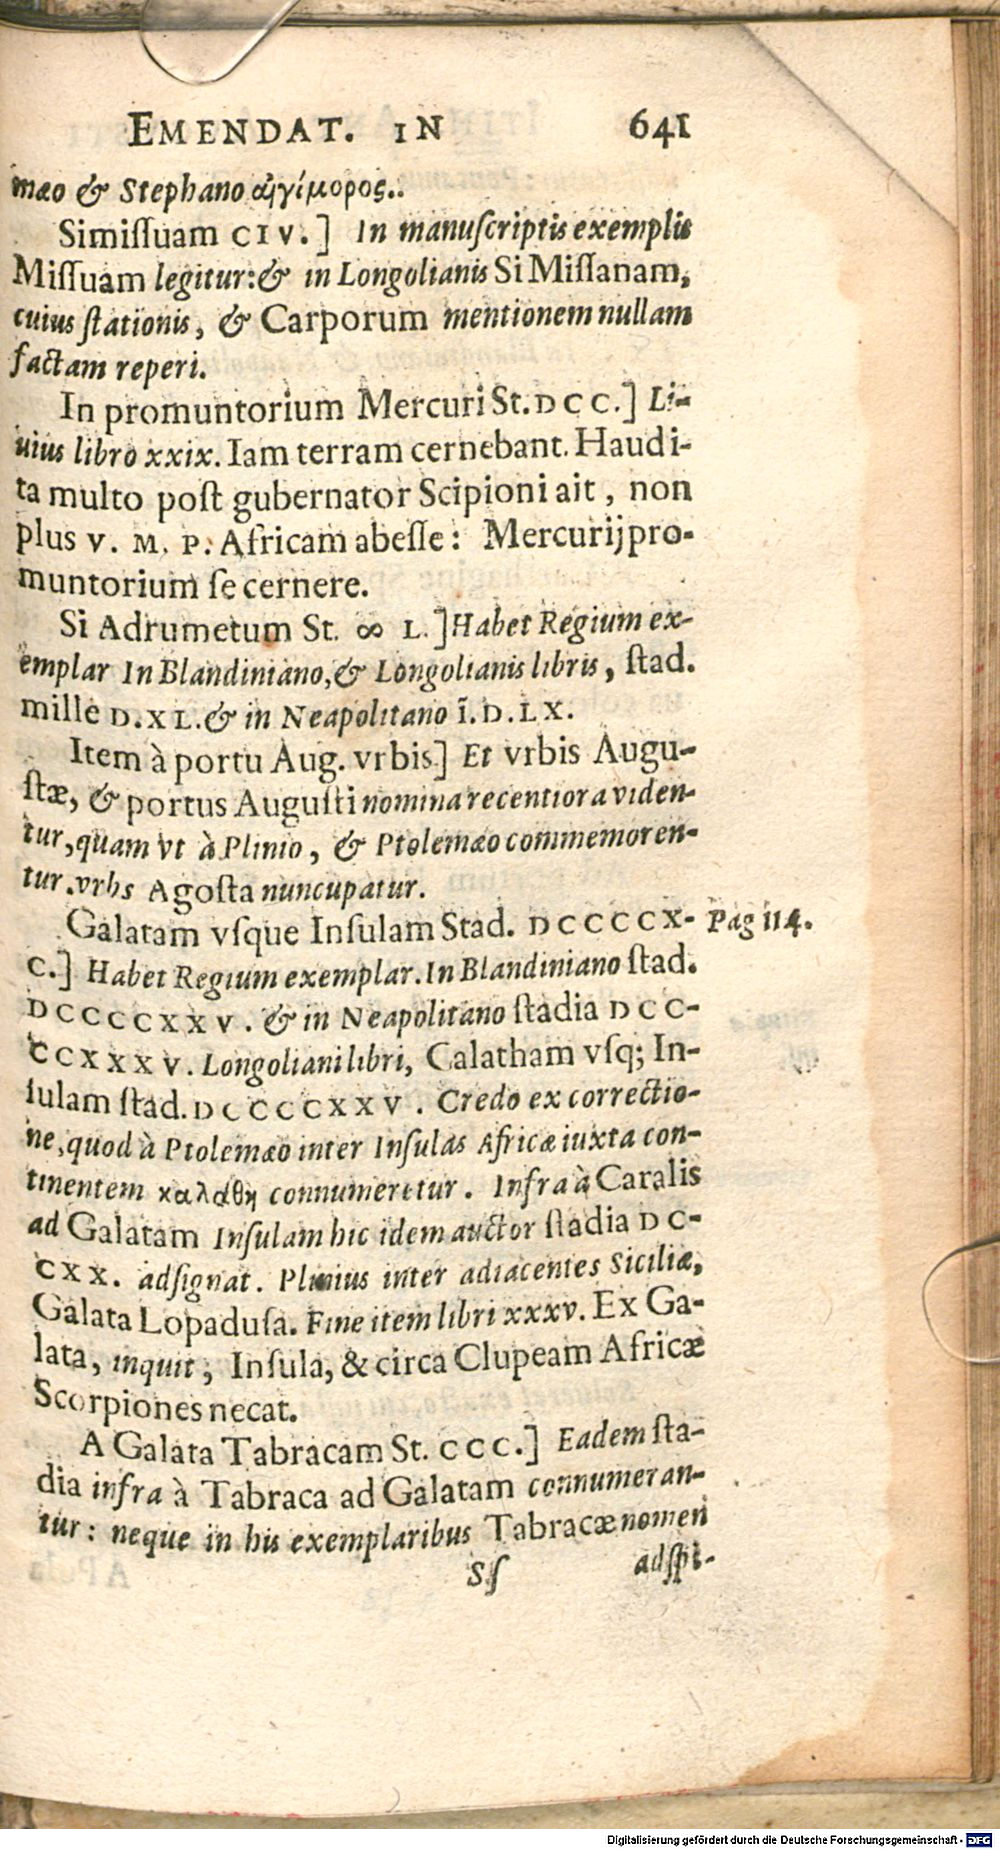 EMENDAT. IN 641
mæo & Stephano αἰγίμορος..
Simissuam CIV.] In manuſcriptis exemplis
Miſſuam legitur: & in Longolianis Si Miſſanam,
cuius ſtationis, & Carporum mentionem nullam
factam reperi.
In promuntorium Mercuri St. DCC.] Li-
uius libro xxix. Iam terram cernebant. Haud i-
ta multo poſt gubernator Scipioni ait, non
plus V. M. P. Africam abeſſe: Mercurij pro-
muntorium ſe cernere.
Si Adrumetum St. ∞ L.] Habet Regium ex-
emplar In Blandiniano, & Longolianis libris, ſtad.
mille D.XL. & in Neapolitano ĩ.D.LX.
Item à portu Aug. vrbis] Et vrbis Augu-
ſtæ, & portus Auguſti nomina recentiora viden-
tur, quam vt à Plinio, & Ptolemæo commemoren-
tur. vrbs Agoſta nuncupatur.
Galatam vſque Inſulam Stad. DCCCCX- Pag 114.
C.] Habet Regium exemplar. In Blandiniano ſtad.
DCCCCXXV. & in Neapolitano ſtadia DCC-
CCXXXV. Longoliani libri, Calatham vſq; In-
ſulam ſtad. DCCCCXXV. Credo ex correctio-
ne, quod à Ptolemæo inter Inſulas Africæ iuxta con-
tinentem καλάθη connumeretur. Infra à Caralis
ad Galatam Inſulam hic idem auctor ſtadia DC-
CXX. adſignat. Plinius inter adiacentes Siciliæ,
Galata Lopaduſa. Fine item libri xxxv. Ex Ga-
lata, inquit, Inſula, & circa Clupeam Africæ
Scorpiones necat.
A Galata Tabracam St. CCC.] Eadem ſta-
dia infra à Tabraca ad Galatam connumeran-
tur: neque in his exemplaribus Tabracæ nomen
Sſ adſpi-
Digitalisierung gefördert durch die Deutsche Forschungsgemeinschaft - DFG